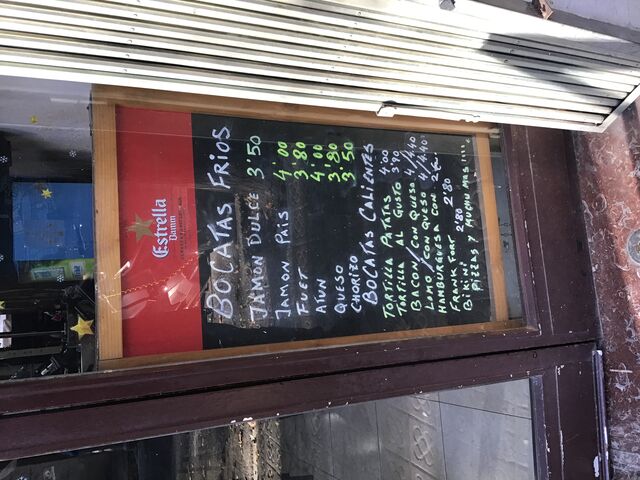 Estrella
Damm
BOCATAS FRIOS
JAMON DULCE 3'50
JAMON PAIS 4'00
FUET 3'80
ATUN 4'00
QUESO 3'80
CHORIZO 3'50
BOCATAS CALIENTES
TORTILLA PATATAS 4'00
TORTILLA AL GUSTO 3'90
BACON/CON QUESO 4/4'40
LOMO/CON QUESO 4/4'40
HAMBURGUESA CON
FRANKFURT 2'80
BIKINI 2'80
PIZZAS Y MUCHU MAS !!!!